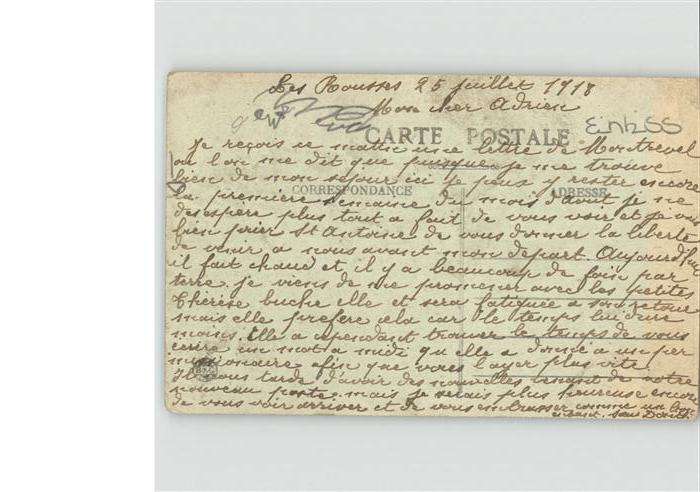 Les Rousses 25 juillet 1918
Mon cher Adrien
CARTE POSTALE
Je reçois ce matin une lettre de Montrevel
ou l'on me dit que puisque je me trouve
bien de mon sejour ici je peux y rester encore
CORRESPONDANCE
ADRESSE
la première semaine du mois d'aout je ne
desespere plus tout a fait de vous voir et je
bien prier St Antoine de vous donner la liberte
de venir a nous avant mon depart. Aujourd'hui
il fait chaud et il y a beaucoup de foin par
terre je viens de me promener avec les petite
Thérèse buche elle et sera fatiguée a son retour
mais elle prefere cela car le temps lui dure
moins. Elle a cependant trouver le temps de vous
ecrire un mot a midi qu'elle a donné a un per
missionaire afin que vous l'ayer plus vite
Il nous tarde d'avoir des nouvelles venant de votre
nouveau poste mais je serais plus heureuse encore
de vous voir arriver et de vous embrasser comme un